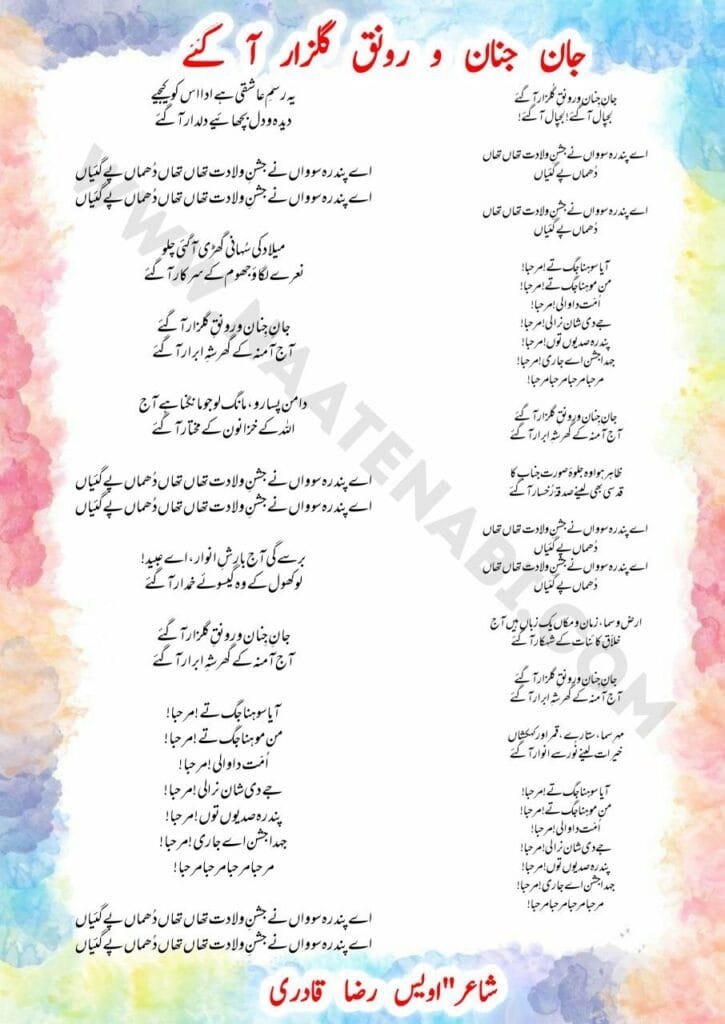 جان جنان و رونق گلزار آ گئے
جانِ جِنان و رونقِ گلزار آگئے
لجپال آگئے! لجپال آگئے!
اے پندرہ سوواں نے جشنِ ولادت تھاں تھاں
دُھماں پے گئیاں
اے پندرہ سوواں نے جشنِ ولادت تھاں تھاں
دُھماں پے گئیاں
آیا سوہنا جگ تے! مرحبا!
من موہنا جگ تے! مرحبا!
اُمّت دا والی! مرحبا!
جے دی شان نرالی! مرحبا!
پندرہ صدیوں توں! مرحبا!
جہدا جشن اے جاری! مرحبا!
مرحبا مرحبا مرحبا مرحبا!
جانِ جِنان و رونقِ گلزار آگئے
آج آمنہ کے گھر شہِ ابرار آگئے
ظاہر ہوا وہ جلوۂ صورت جناب کا
قدسی بھی لینے صدقۂ رُخسار آگئے
اے پندرہ سوواں نے جشنِ ولادت تھاں تھاں
دُھماں پے گئیاں
اے پندرہ سوواں نے جشنِ ولادت تھاں تھاں
دُھماں پے گئیاں
ارض و سما، زمان و مکاں یک زباں ہیں آج
خلاقِ کائنات کے شہکار آگئے
جانِ جِنان و رونقِ گلزار آگئے
آج آمنہ کے گھر شہِ ابرار آگئے
مہر سما، ستارے، قمر اور کہکشاں
خیرات لینے نور سے انوار آگئے
آیا سوہنا جگ تے! مرحبا!
من موہنا جگ تے! مرحبا!
اُمّت دا والی! مرحبا!
جے دی شان نرالی! مرحبا!
پندرہ صدیوں توں! مرحبا!
جہدا جشن اے جاری! مرحبا!
مرحبا مرحبا مرحبا مرحبا!
یہ رسمِ عاشقی ہے ادا اس کو کیجیے
دیدہ و دل بچھائیے دلدار آگئے
اے پندرہ سوواں نے جشنِ ولادت تھاں تھاں دُھماں پے گئیاں
اے پندرہ سوواں نے جشنِ ولادت تھاں تھاں دُھماں پے گئیاں
میلاد کی سُہانی گھڑی آگئی چلو
نعرے لگاؤ جھوم کے سرکار آگئے
جانِ جِنان و رونقِ گلزار آگئے
آج آمنہ کے گھر شہِ ابرار آگئے
دامن پسارو، مانگ لو جو مانگنا ہے آج
اللہ کے خزانوں کے مختار آگئے
اے پندرہ سوواں نے جشنِ ولادت تھاں تھاں دُھماں پے گئیاں
اے پندرہ سوواں نے جشنِ ولادت تھاں تھاں دُھماں پے گئیاں
برسے گی آج بارشِ انوار، اے عبید!
لو کھول کے وہ گیسوئے خمدار آگئے
جانِ جِنان و رونقِ گلزار آگئے
آج آمنہ کے گھر شہِ ابرار آگئے
آیا سوہنا جگ تے! مرحبا!
من موہنا جگ تے! مرحبا!
اُمّت دا والی! مرحبا!
جے دی شان نرالی! مرحبا!
پندرہ صدیوں توں! مرحبا!
جہدا جشن اے جاری! مرحبا!
مرحبا مرحبا مرحبا مرحبا!
اے پندرہ سوواں نے جشنِ ولادت تھاں تھاں دُھماں پے گئیاں
اے پندرہ سوواں نے جشنِ ولادت تھاں تھاں دُھماں پے گئیاں
شاعر"اویس رضا قادری
WWW.NAATENABI.COM